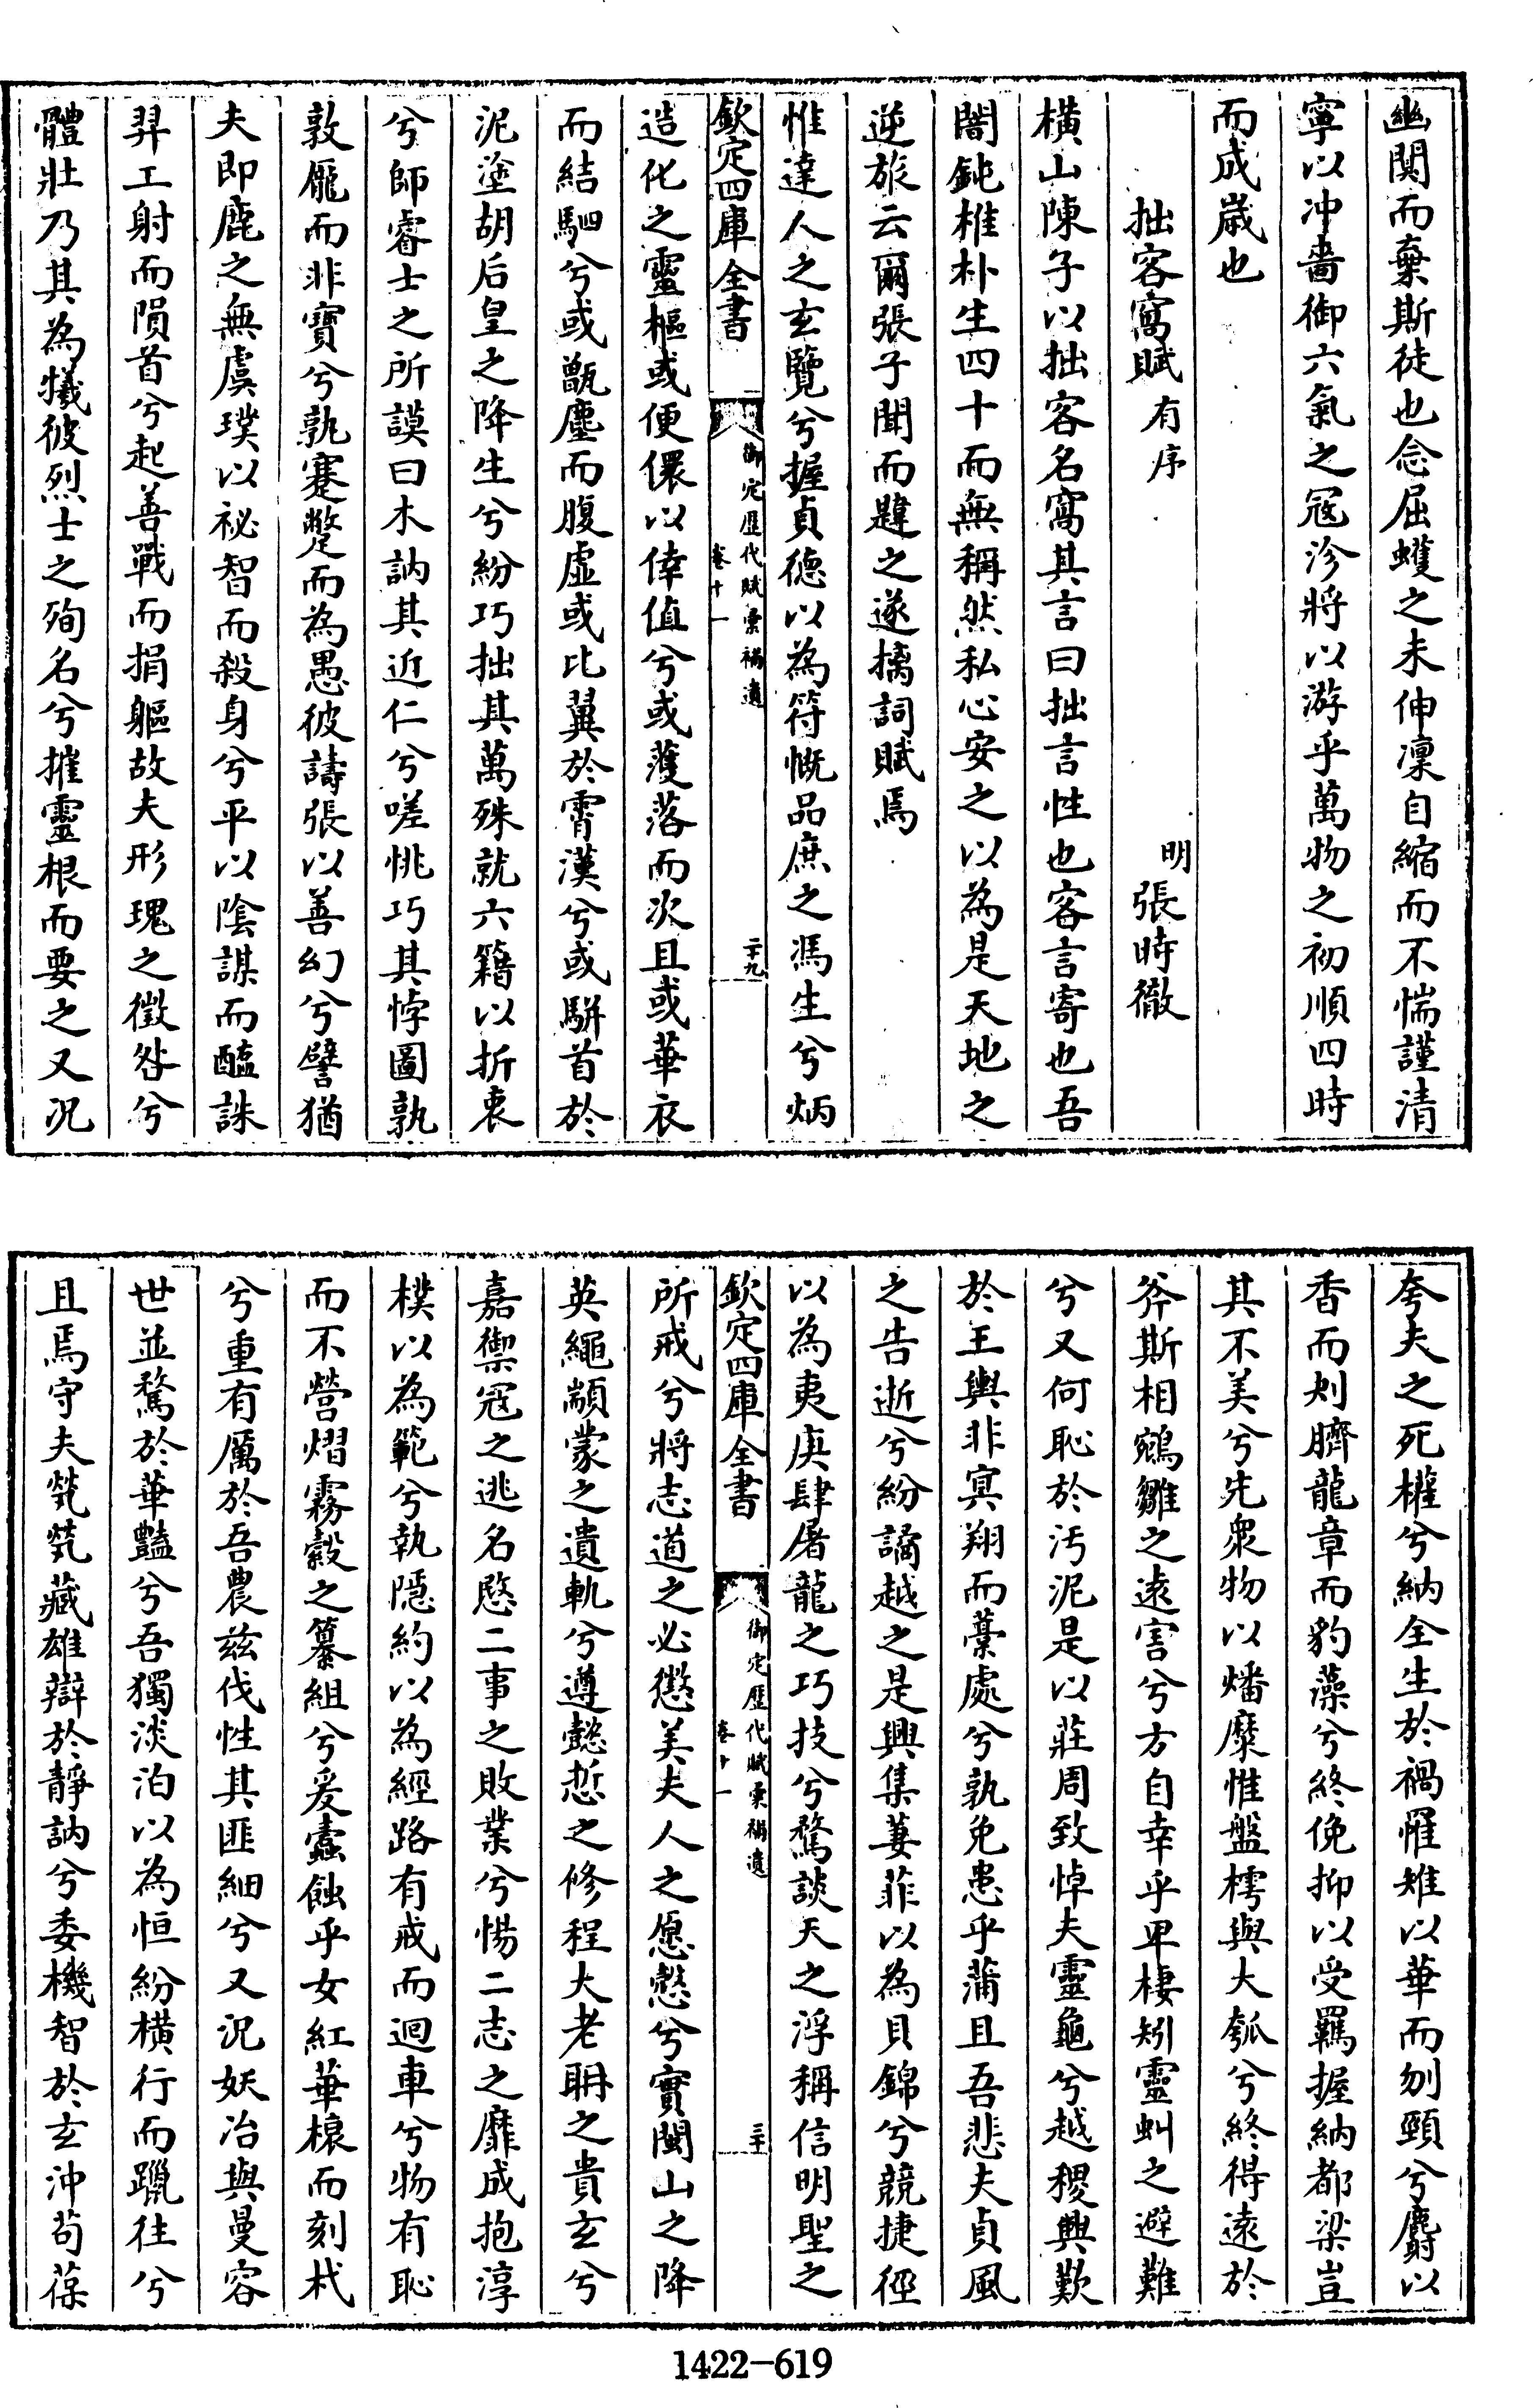 幽関而棄斯徒也念屈蠖之未伸凜自縮而不惴謹清
寧以冲嗇御六氣之寇沴將以游乎萬物之初順四時
而成歳也
拙客窩賦有序
明張時徹
橫山陳子以拙客名窩其言曰拙言性也客言寄也吾
闇鈍椎朴生四十而無稱然私心安之以為是天地之
逆旅云爾張子聞而韙之遂摛詞賦焉
惟達人之玄覽兮握貞德以為符慨品庶之馮生兮炳
欽定四庫全書
御定歴代賦彚補遺
卷十一
二十九
造化之靈樞或便儇以倖值兮或濩落而次且或華衣
而結駟兮或甑塵而腹虛或比翼於霄漢兮或駢首於
泥塗胡后皇之降生兮紛巧拙其萬殊就六籍以折衷
兮師睿士之所謨曰木訥其近仁兮嗟恌巧其悖圖孰
敦厖而非寶兮孰蹇蹩而為愚彼譸張以善幻兮譬猶
夫即鹿之無虞璞以祕智而殺身兮平以陰謀而醢誅
羿工射而隕首兮起善戰而捐軀故夫形瑰之徵咎兮
體壯乃其為犧彼烈士之殉名兮摧靈根而要之又况
夸夫之死權兮納全生於禍罹雉以華而刎頸兮麝以
香而刔臍龍章而豹藻兮終俛抑以受羈握納都梁豈
其不美兮先衆物以燔糜惟盤樗與大瓠兮終得遠於
斧斯相鵷雛之遠害兮方自幸乎卑棲矧靈虯之避難
兮又何恥於汚泥是以莊周致悼夫靈龜兮越稷興歎
於王輿非冥翔而藁處兮孰免患乎蒲且吾悲夫貞風
之告逝兮紛譎越之是興集萋菲以為貝錦兮競捷徑
以為夷庚肆屠龍之巧技兮騖談天之浮稱信明聖之
欽定四庫全書
御定歴代賦彚補遺
卷十一
三十
所戒兮將志道之必懲美夫人之愿慤兮實閩山之降
英繩顓蒙之遺軌兮遵懿悊之修程大老耼之貴玄兮
嘉禦寇之逃名愍二事之敗業兮惕二志之靡成抱淳
樸以為範兮執隱約以為經路有戒而迴車兮物有恥
而不營熠霧縠之纂組兮爰蠧蝕乎女紅華榱而刻杙
兮重有厲於吾農兹伐性其匪細兮又况妖冶與曼容
世並騖於華豔兮吾獨淡泊以為恒紛橫行而躐往兮
且焉守夫煢煢藏雄辯於靜訥兮委機智於玄沖苟葆
1422-619